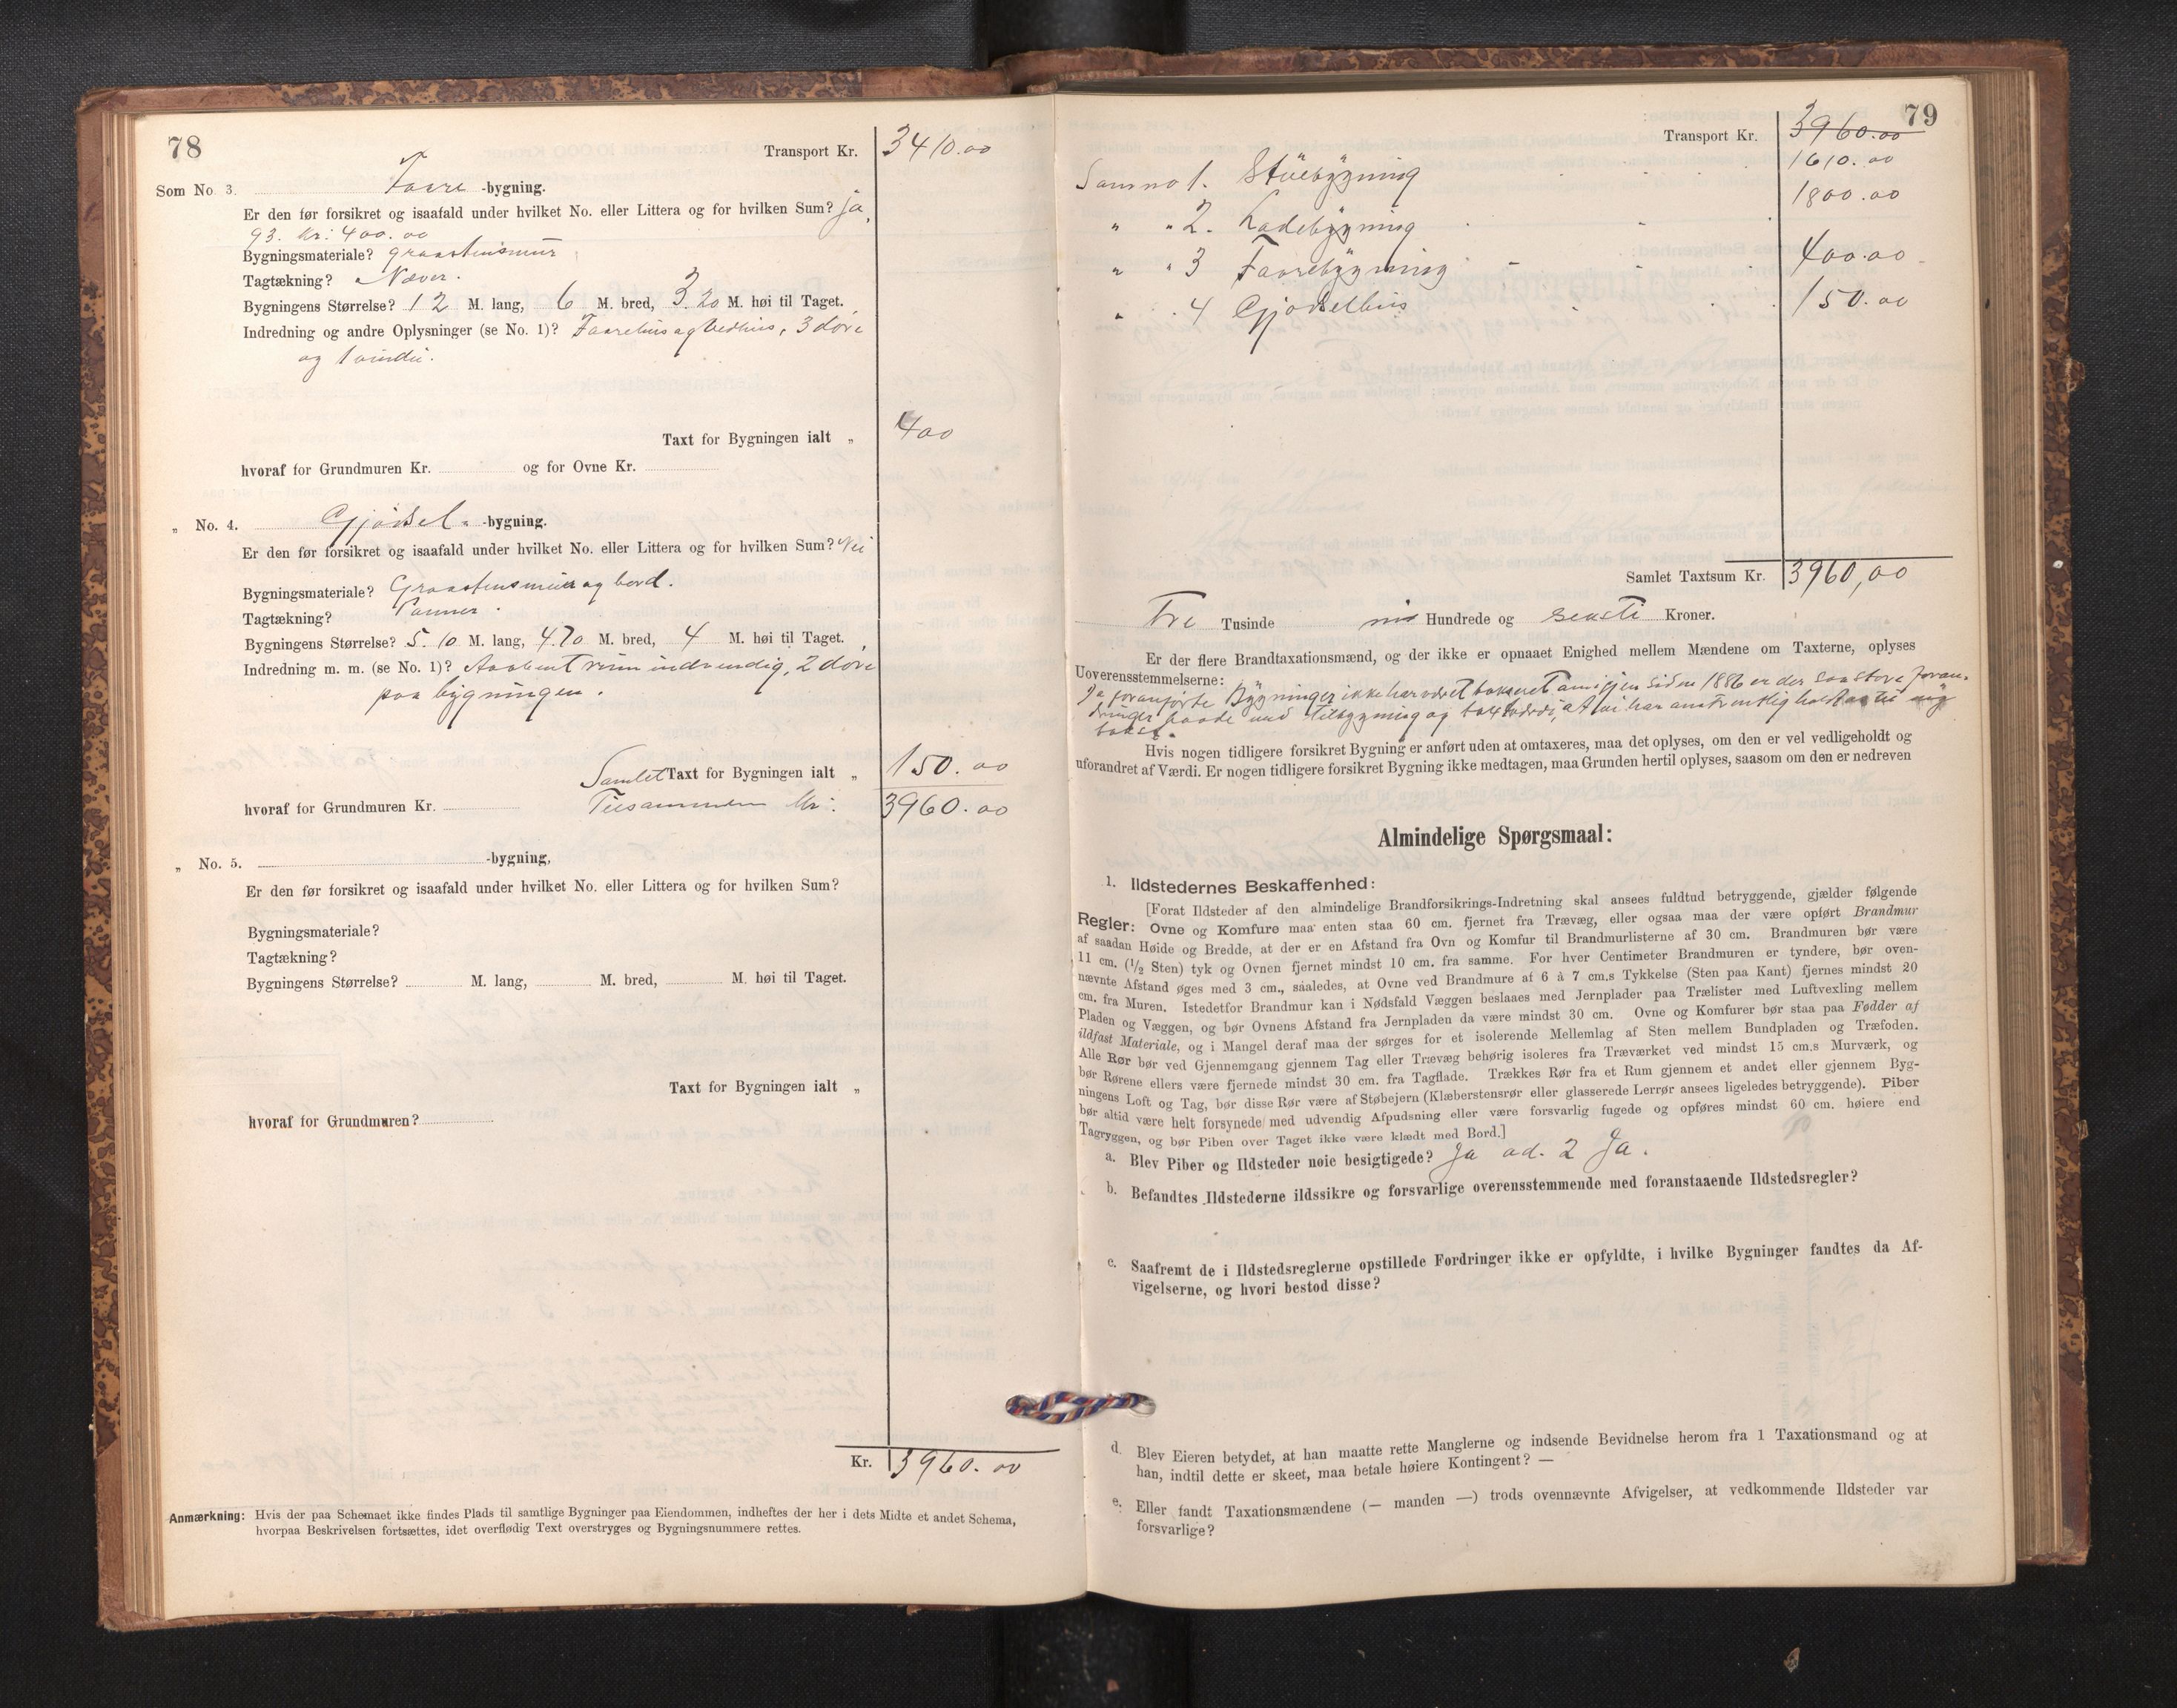 78
Transport Kr. 3410.00
Som No. 3. Faare -bygning.
Er den før forsikret og isaafald under hvilket No. eller Littera og for hvilken Sum? ja,
93. Kr: 400.00
Bygningsmateriale? graastensmur
Tagtækning? Næver.
Bygningens Størrelse? 12 M. lang, 6 M. bred, 3.20 M. høi til Taget.
Indredning og andre Oplysninger (se No. 1)? Faarehus og Vedhus, 3 døre
og 1 vindu.
Taxt for Bygningen ialt „ 400
hvoraf for Grundmuren Kr. og for Ovne Kr.
„ No. 4. Gjødsel -bygning.
Er den før forsikret og isaafald under hvilket No. eller Littera og for hvilken Sum? Nei
Bygningsmateriale? Graastensmur og bord.
Tagtækning? Panner.
Bygningens Størrelse? 5.10 M. lang, 4.70 M. bred, 4 M. høi til Taget.
Indredning m. m. (se No. 1)? Aabent rum indvendig, 2 døre
paa bygningen.
Samlet Taxt for Bygningen ialt „ 150.00
hvoraf for Grundmuren Kr. Tilsammen Kr: 3960.00
„ No. 5. -bygning,
Er den før forsikret og isaafald under hvilket No. eller Littera og for hvilken Sum?
Bygningsmateriale?
Tagtækning?
Bygningens Størrelse? M. lang, M. bred, M. høi til Taget.
Taxt for Bygningen ialt „
hvoraf for Grundmuren?
Kr. 3960.00
Anmærkning: Hvis der paa Schemaet ikke findes Plads til samtlige Bygninger paa Eiendommen, indheftes der her i dets Midte et andet Schema,
hvorpaa Beskrivelsen fortsættes, idet overflødig Text overstryges og Bygningsnummere rettes.
79
Transport Kr. 3960.00
Som no 1. Stuebygning 1610.00
„ „ 2. Ladebygning 1800.00
„ „ 3 Faarebygning 400.00
„ „ 4 Gjødselhus 150.00
Samlet Taxtsum Kr. 3960,00
Tre Tusinde ni Hundrede og seksti Kroner.
Er der flere Brandtaxationsmænd, og der ikke er opnaaet Enighed mellem Mændene om Taxterne, oplyses
Uoverensstemmelserne:
Da foranførte Bygninger ikke har været takseret om igjen siden 1886 er der saa store foran-
dringer baade med Tilbygning og taxtværdi, at vi har anstrentlig holdt os til ny
takst.
Hvis nogen tidligere forsikret Bygning er anført uden at omtaxeres, maa det oplyses, om den er vel vedligeholdt og
uforandret af Værdi. Er nogen tidligere forsikret Bygning ikke medtagen, maa Grunden hertil oplyses, saasom om den er nedreven
Almindelige Spørgsmaal:
1. Ildstedernes Beskaffenhed:
[Forat Ildsteder af den almindelige Brandforsikrings-Indretning skal ansees fuldtud betryggende, gjælder følgende
Regler: Ovne og Komfure maa enten staa 60 cm. fjernet fra Trævæg, eller ogsaa maa der være opført Brandmur
af saadan Høide og Bredde, at der er en Afstand fra Ovn og Komfur til Brandmurlisterne af 30 cm. Brandmuren bør være
11 cm. (1/2 Sten) tyk og Ovnen fjernet mindst 10 cm. fra samme. For hver Centimeter Brandmuren er tyndere, bør oven-
nævnte Afstand øges med 3 cm., saaledes, at Ovne ved Brandmure af 6 à 7 cm.s Tykkelse (Sten paa Kant) fjernes mindst 20
cm. fra Muren. Istedetfor Brandmur kan i Nødsfald Væggen beslaaes med Jernplader paa Trælister med Luftvexling mellem
Pladen og Væggen, og bør Ovnens Afstand fra Jernpladen da være mindst 30 cm. Ovne og Komfurer bør staa paa Fødder af
ildfast Materiale, og i Mangel deraf maa der sørges for et isolerende Mellemlag af Sten mellem Bundpladen og Træfoden.
Alle Rør bør ved Gjennemgang gjennem Tag eller Trævæg behørig isoleres fra Træværket ved mindst 15 cm.s Murværk, og
bør Rørene ellers være fjernede mindst 30 cm. fra Tagflade. Trækkes Rør fra et Rum gjennem et andet eller gjennem Byg-
ningens Loft og Tag, bør disse Rør være af Støbejern (Klæberstensrør eller glasserede Lerrør ansees ligeledes betryggende). Piber
bør altid være helt forsynede med udvendig Afpudsning eller være forsvarlig fugede og opføres mindst 60 cm. høiere end
Tagryggen, og bør Piben over Taget ikke være klædt med Bord.]
a. Blev Piber og Ildsteder nøie besigtigede? Ja ad. 2 Ja.
b. Befandtes Ildstederne ildssikre og forsvarlige overensstemmende med foranstaaende Ildstedsregler?
c. Saafremt de i Ildstedsreglerne opstillede Fordringer ikke er opfyldte, i hvilke Bygninger fandtes da Af-
vigelserne, og hvori bestod disse?
d. Blev Eieren betydet, at han maatte rette Manglerne og indsende Bevidnelse herom fra 1 Taxationsmand og at
han, indtil dette er skeet, maa betale høiere Kontingent? —
e. Eller fandt Taxationsmændene (— manden —) trods ovennævnte Afvigelser, at vedkommende Ildsteder var
forsvarlige?